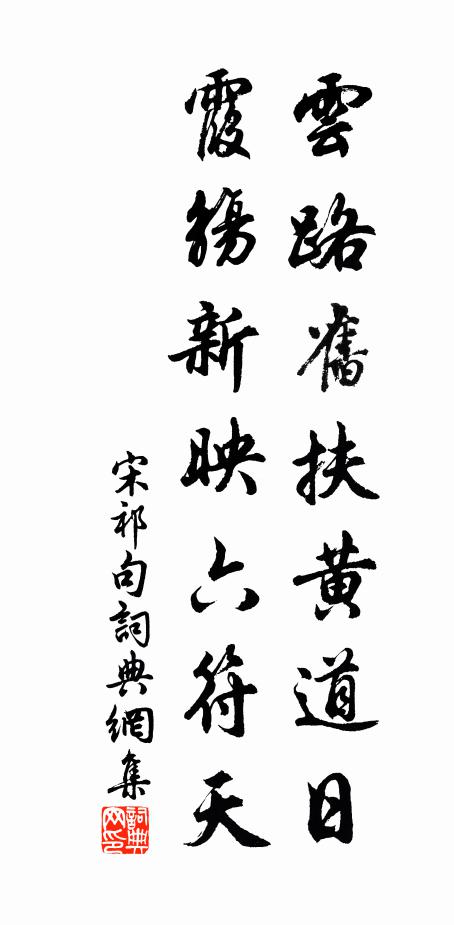 雲路舊扶黄道日
霞觴新映六符天
宋祁句詞典網集
詞典网印